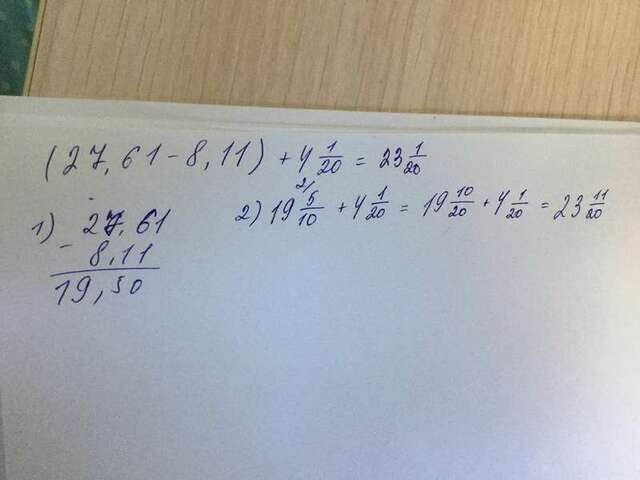 (27,61-8,11)+4 1/20 = 23 1/20
1) 27,61
- 8,11
19,50
2) 19 5/10 2/ + 4 1/20 = 19 10/20 + 4 1/20 = 23 11/20